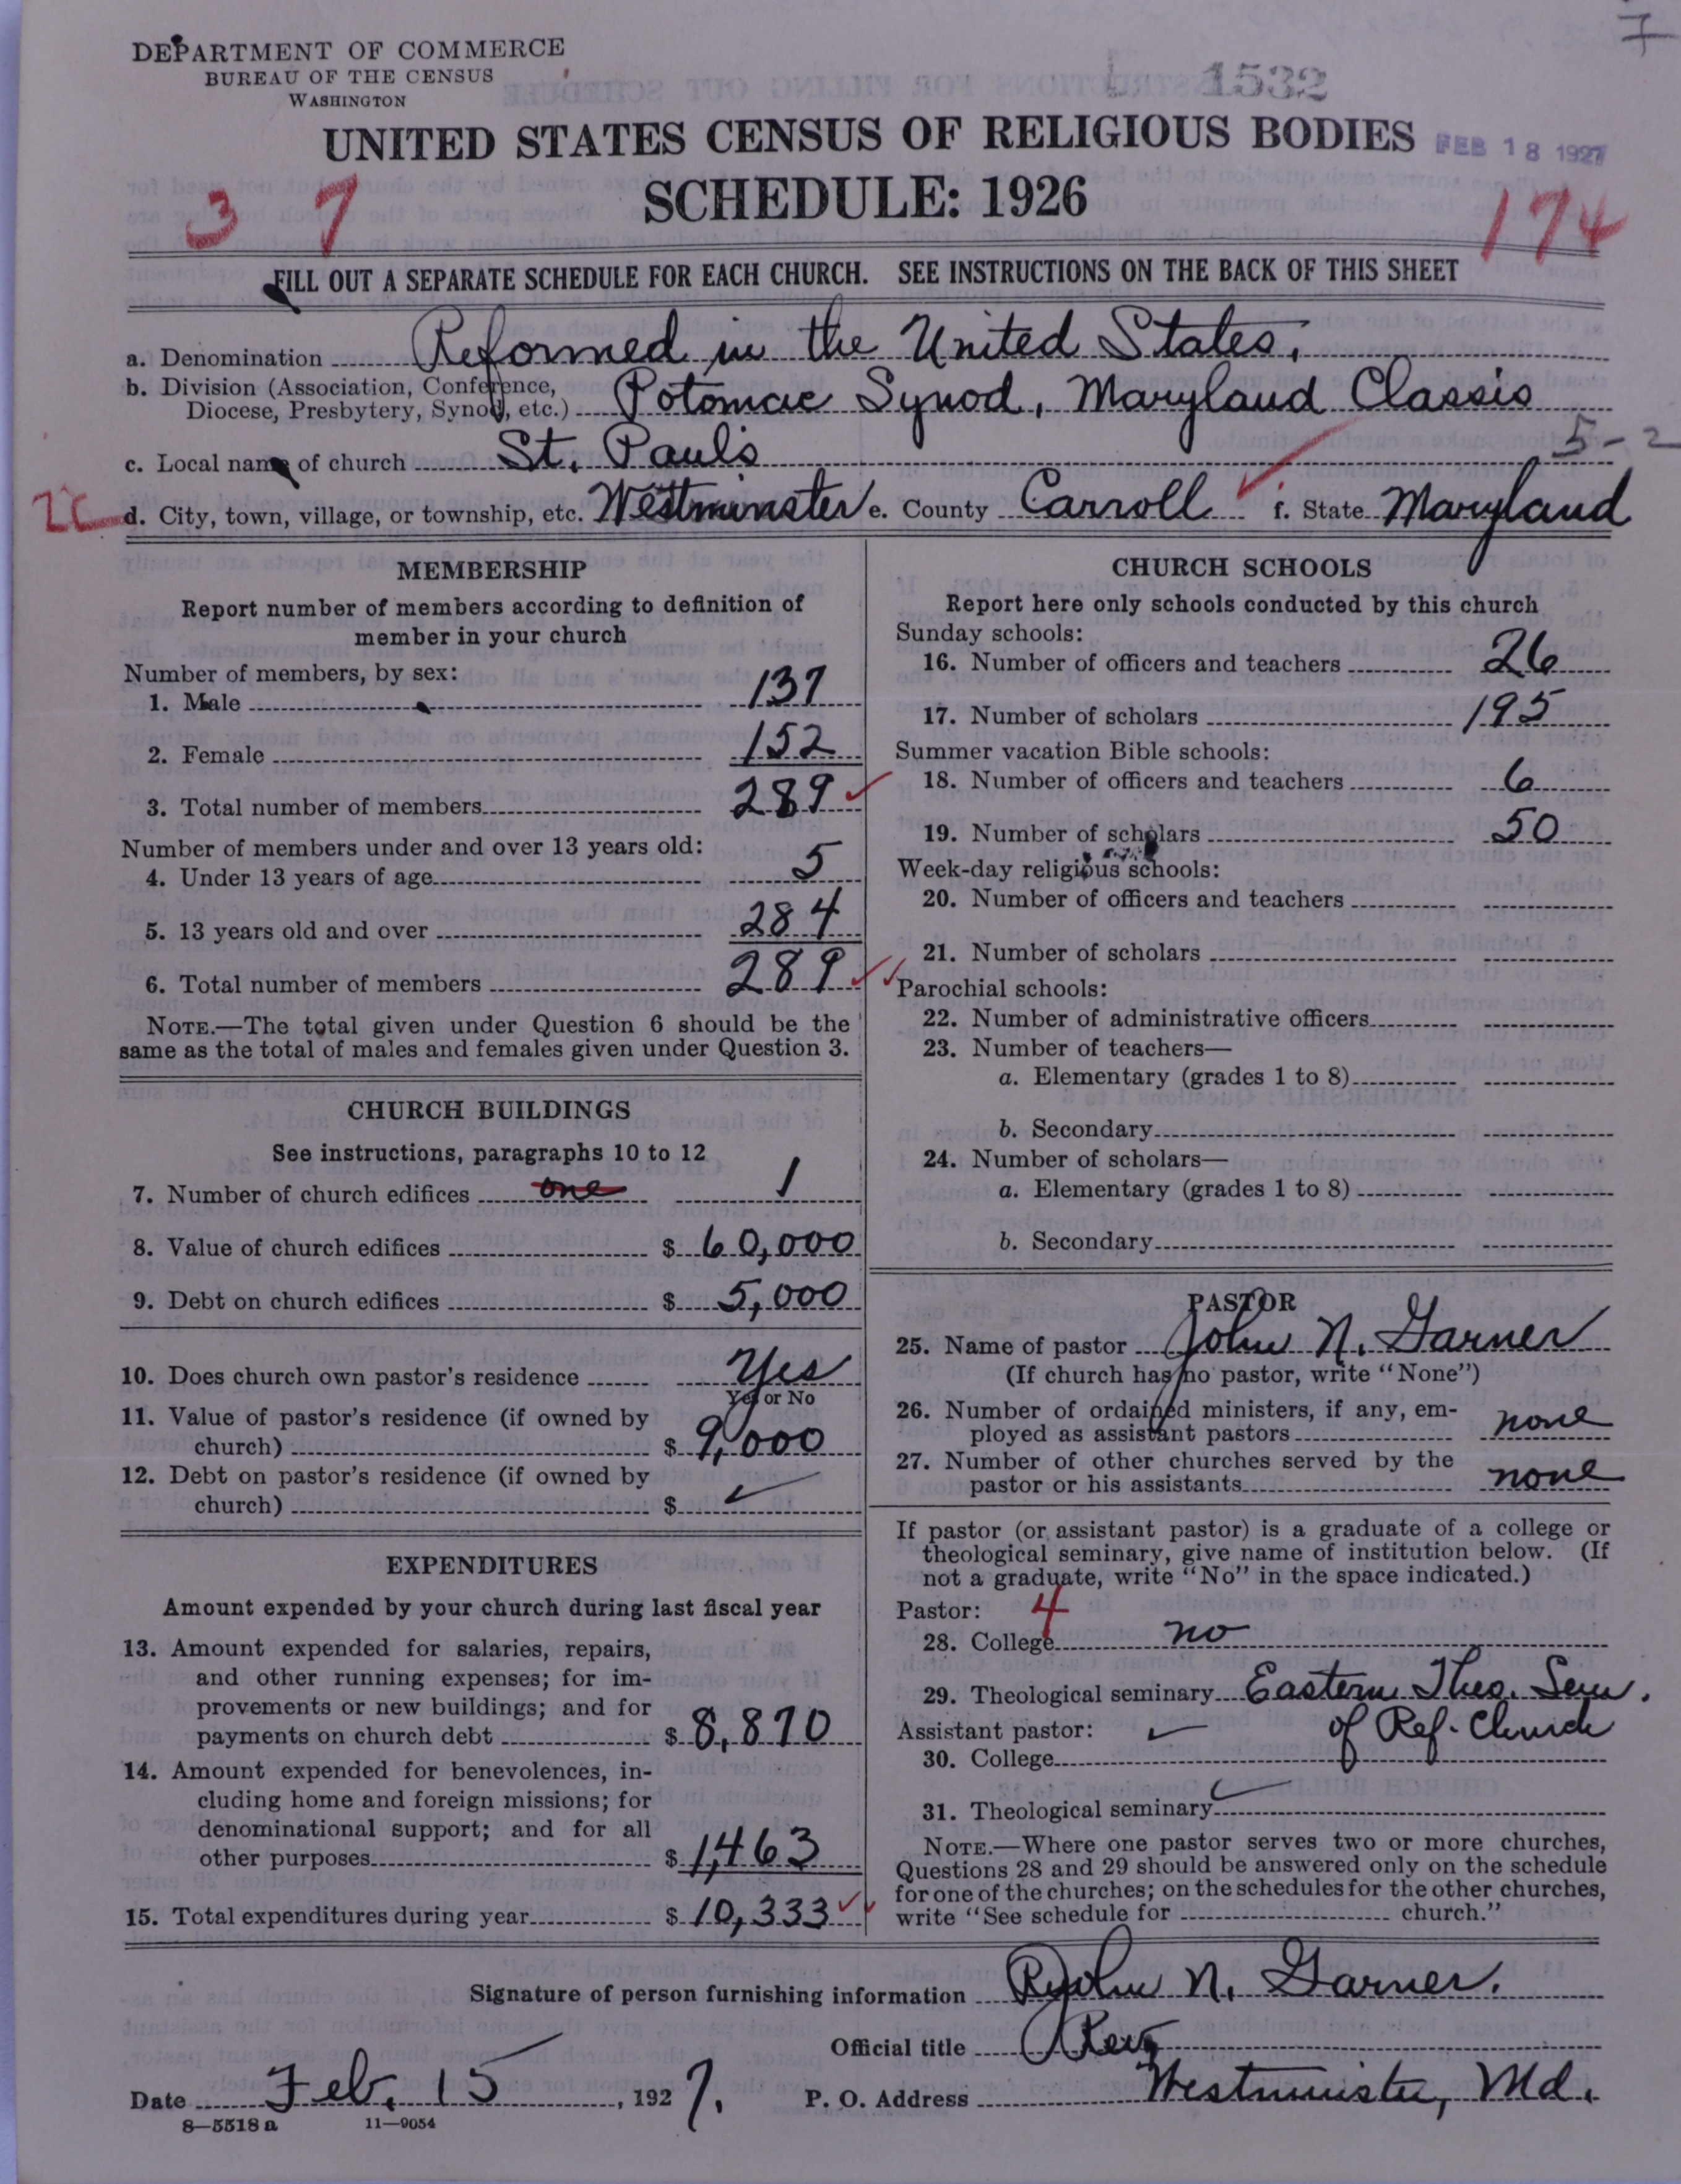 DEPARTMENT OF COMMERCE
BUREAU OF THE CENSUS
WASHINGTON
1532
UNITED STATES CENSUS OF RELIGIOUS BODIES
FEB 18 1927
SCHEDULE: 1926
3 7
174
FILL OUT A SEPARATE SCHEDULE FOR EACH CHURCH. SEE INSTRUCTIONS ON THE BACK OF THIS SHEET
a. Denomination Reformed in the United States.
b. Division (Association, Conference,
Diocese, Presbytery, Synod, etc.) Potomac Synod, Maryland Classis
5-2
c. Local name of church St. Paul's
d. City, town, village, or township, etc. Westminster e. County Carroll f. State Maryland
MEMBERSHIP
Report number of members according to definition of
member in your church
Number of members, by sex:
1. Male 137
2. Female 152
3. Total number of members 289
Number of members under and over 13 years old:
4. Under 13 years of age 5
5. 13 years old and over 284
6. Total number of members 289
NOTE.—The total given under Question 6 should be the
same as the total of males and females given under Question 3.
CHURCH BUILDINGS
See instructions, paragraphs 10 to 12
7. Number of church edifices one 1
8. Value of church edifices $ 60,000
9. Debt on church edifices $ 5,000
10. Does church own pastor's residence Yes
Yes or No
11. Value of pastor's residence (if owned by
church) $ 9,000
12. Debt on pastor's residence (if owned by
church) $
EXPENDITURES
Amount expended by your church during last fiscal year
13. Amount expended for salaries, repairs,
and other running expenses; for im-
provements or new buildings; and for
payments on church debt $ 8,870
14. Amount expended for benevolences, in-
cluding home and foreign missions; for
denominational support; and for all
other purposes $ 1,463
15. Total expenditures during year $ 10,333
CHURCH SCHOOLS
Report here only schools conducted by this church
Sunday schools:
16. Number of officers and teachers 26
17. Number of scholars 195
Summer vacation Bible schools:
18. Number of officers and teachers 6
19. Number of scholars 50
Week-day religious schools:
20. Number of officers and teachers
21. Number of scholars
Parochial schools:
22. Number of administrative officers
23. Number of teachers—
a. Elementary (grades 1 to 8)
b. Secondary
24. Number of scholars—
a. Elementary (grades 1 to 8)
b. Secondary
PASTOR
25. Name of pastor John N. Garner
(If church has no pastor, write "None")
26. Number of ordained ministers, if any, em-
ployed as assistant pastors none
27. Number of other churches served by the
pastor or his assistants none
If pastor (or assistant pastor) is a graduate of a college or
theological seminary, give name of institution below. (If
not a graduate, write "No" in the space indicated.)
Pastor: 4
28. College no
29. Theological seminary Eastern Theo. Sem.
Assistant pastor: of Ref. Church
30. College
31. Theological seminary
NOTE.—Where one pastor serves two or more churches,
Questions 28 and 29 should be answered only on the schedule
for one of the churches; on the schedules for the other churches,
write "See schedule for church."
Signature of person furnishing information John N. Garner.
Official title Rev
Date Feb. 15, 1927. P. O. Address Westminster, Md.
8—5518 a 11—9054